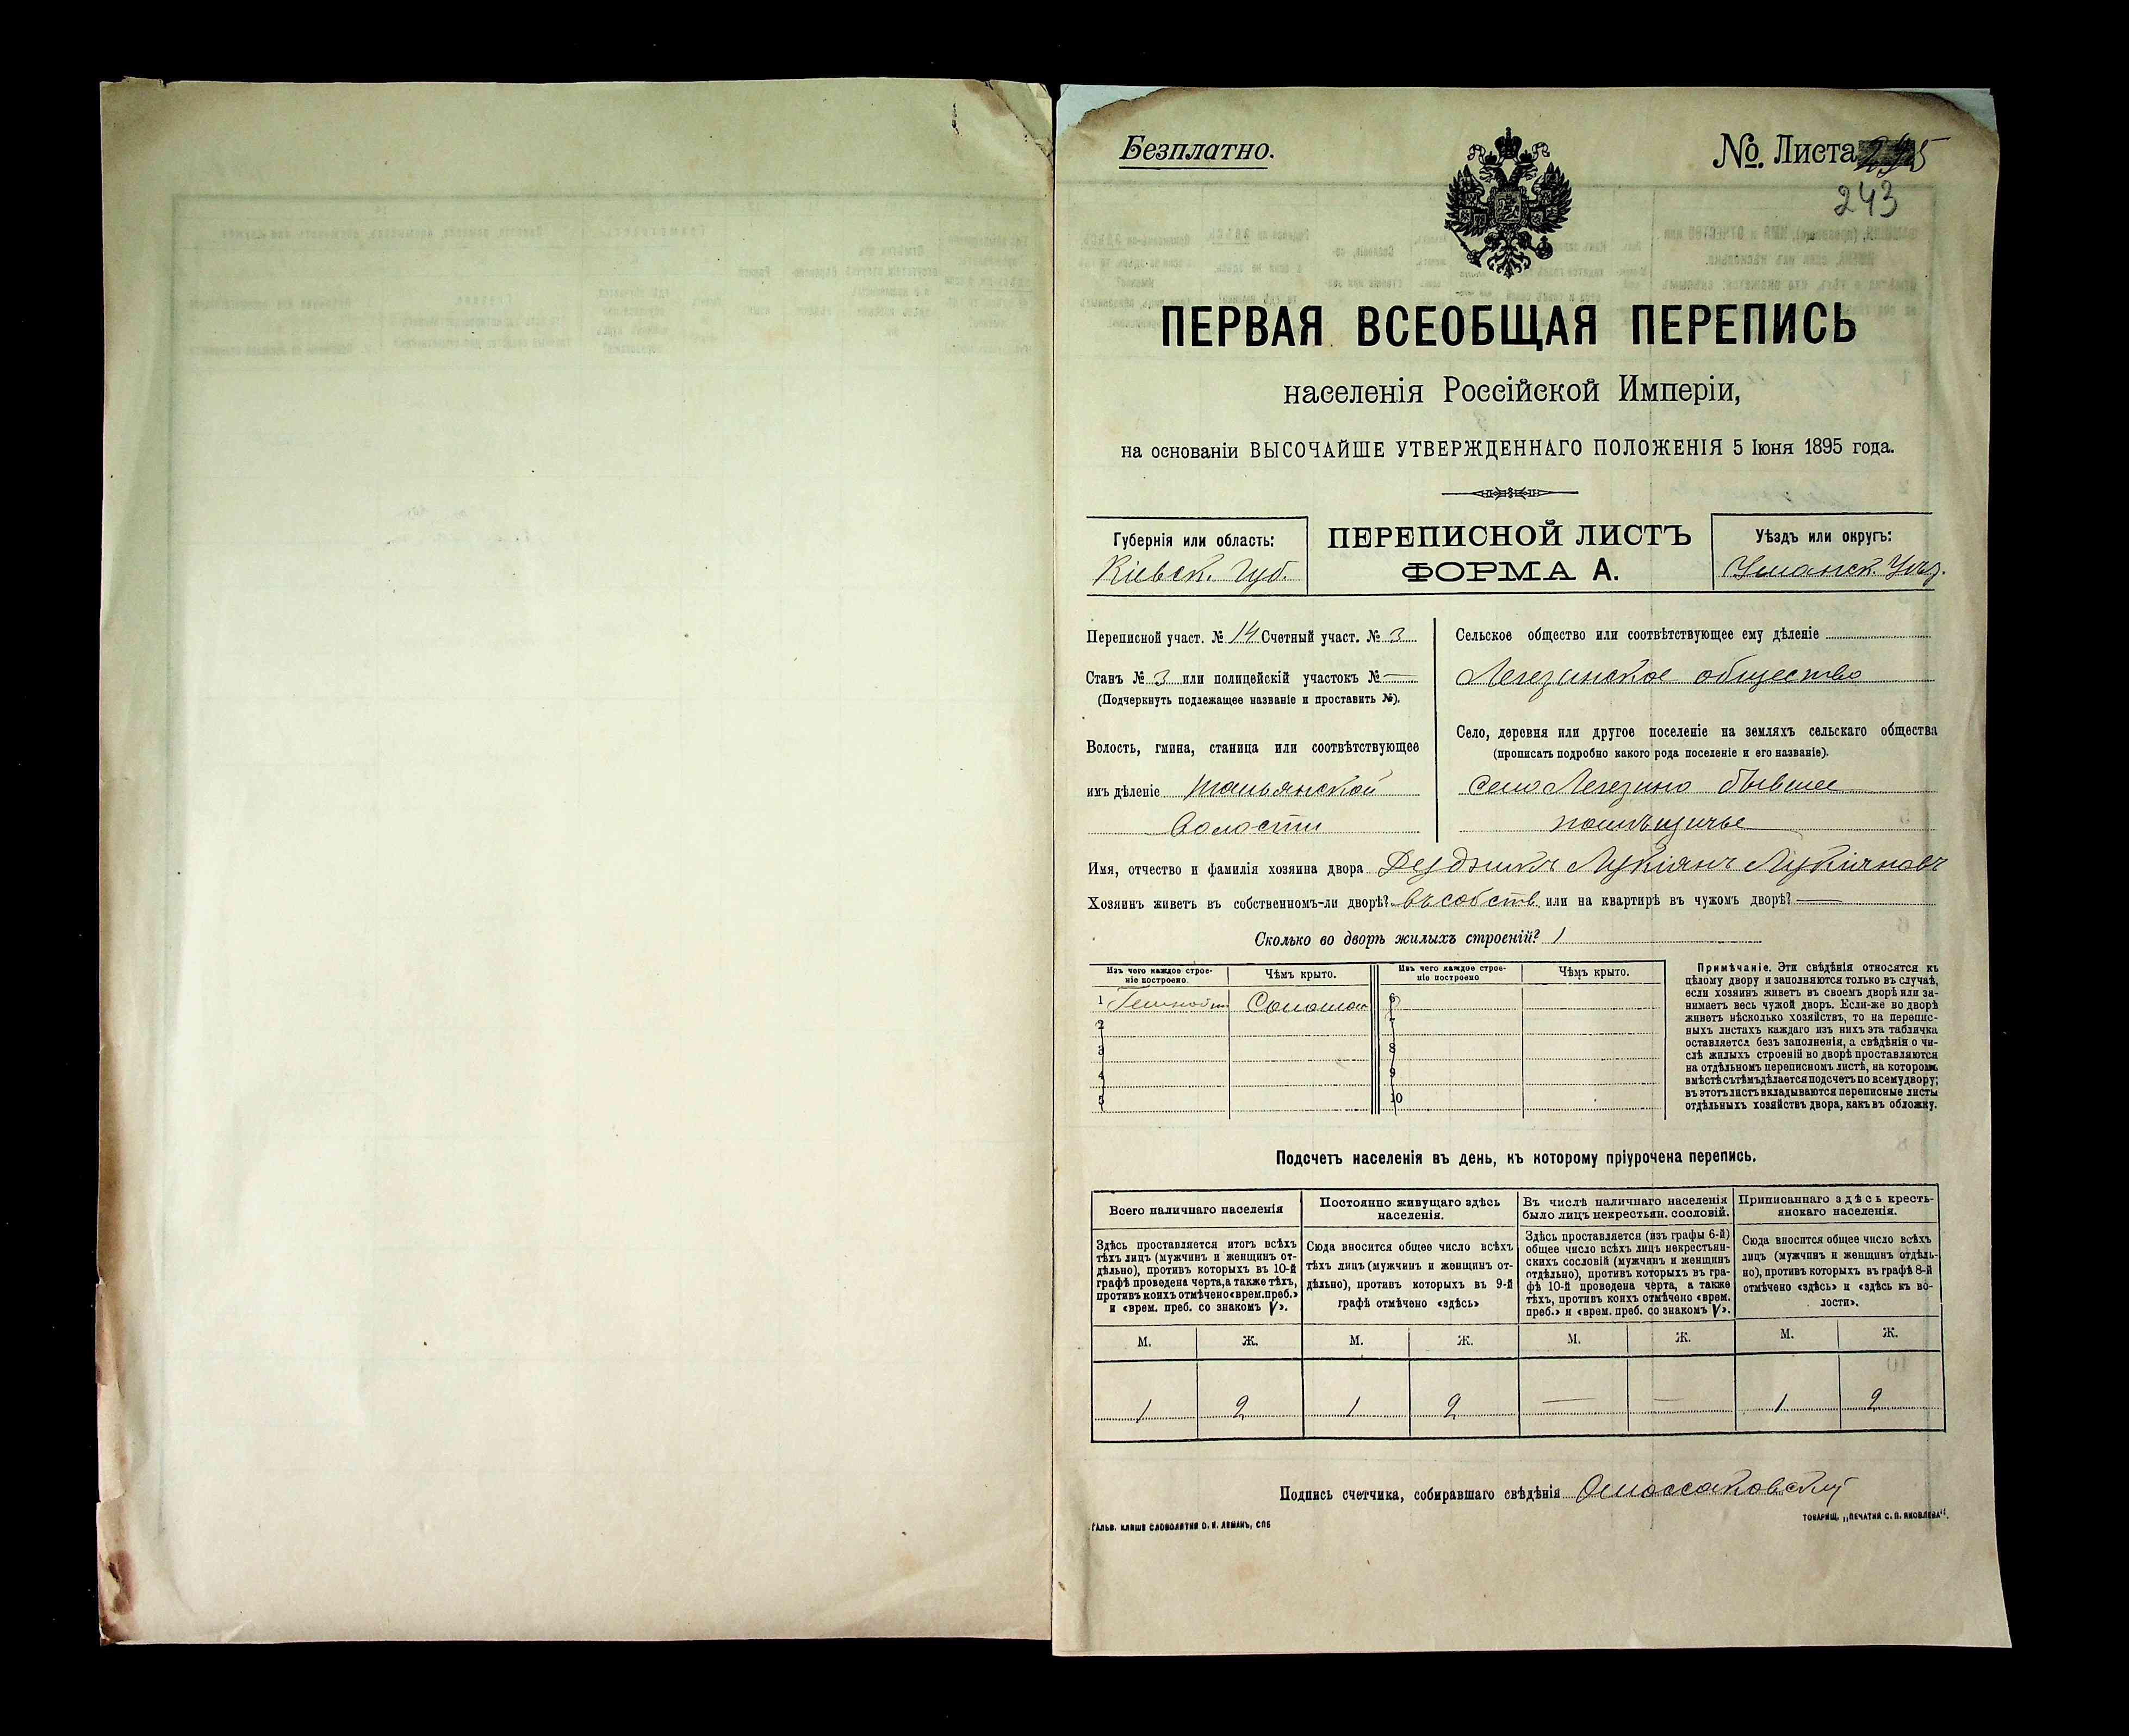 Безплатно.
№ Листа 245
243
ПЕРВАЯ ВСЕОБЩАЯ ПЕРЕПИСЬ
населенія Россійской Имперіи,
на основаніи ВЫСОЧАЙШЕ УТВЕРЖДЕННАГО ПОЛОЖЕНІЯ 5 Іюня 1895 года.
Губернія или область:
Кіевск. Губ.
ПЕРЕПИСНОЙ ЛИСТЪ
ФОРМА А.
Уѣздъ или округъ:
Уманск. Уѣз.
Переписной участ. № 14 Счетный участ. № 3
Станъ № 3 или полицейскій участокъ № —
(Подчеркнуть подлежащее названіе и проставить №).
Волость, гмина, станица или соотвѣтствующее
имъ дѣленіе Тальянской
Волости
Сельское общество или соотвѣтствующее ему дѣленіе
Легезинское общество
Село, деревня или другое поселеніе на земляхъ сельскаго общества
(прописать подробно какого рода поселеніе и его названіе).
Село Легезино бывшее
помѣщичье
Имя, отчество и фамилія хозяина двора Лукіянъ Лукіяновъ
Хозяинъ живетъ въ собственномъ-ли дворѣ? въ собств. или на квартирѣ въ чужомъ дворѣ? —
Сколько во дворѣ жилыхъ строеній? 1
Изъ чего каждое строеніе построено.
Чѣмъ крыто.
Изъ чего каждое строеніе построено
Чѣмъ крыто.
1 Соломою
2
3
4
5
6
7
8
9
10
Примѣчаніе. Эти свѣдѣнія относятся къ
цѣлому двору и заполняются только въ случаѣ,
если хозяинъ живетъ въ своемъ дворѣ или за-
нимаетъ весь чужой дворъ. Если-же во дворѣ
живетъ нѣсколько хозяйствъ, то на перепис-
ныхъ листахъ каждаго изъ нихъ эта табличка
оставляется безъ заполненія, а свѣдѣнія о чи-
слѣ жилыхъ строеній во дворѣ проставляются
на отдѣльномъ переписномъ листѣ, на которомъ
вмѣстѣ съ тѣмъ дѣлается подсчетъ по всему двору;
въ этотъ листъ вкладываются переписные листы
отдѣльныхъ хозяйствъ двора, какъ въ обложку.
Подсчетъ населенія въ день, къ которому пріурочена перепись.
Всего наличнаго населенія
Постоянно живущаго здѣсь
населенія.
Въ числѣ наличнаго населенія
было лицъ некрестьян. сословій.
Приписаннаго здѣсь кресть-
янскаго населенія.
Здѣсь проставляется итогъ всѣхъ
тѣхъ лицъ (мужчинъ и женщинъ от-
дѣльно), противъ которыхъ въ 10-й
графѣ проведена черта, а также тѣхъ,
противъ коихъ отмѣчено «врем. преб.»
и «врем. преб. со знакомъ V».
Сюда вносится общее число всѣхъ
тѣхъ лицъ (мужчинъ и женщинъ от-
дѣльно), противъ которыхъ въ 9-й
графѣ отмѣчено «здѣсь»
Здѣсь проставляется (изъ графы 6-й)
общее число всѣхъ лицъ некрестьян-
скихъ сословій (мужчинъ и женщинъ
отдѣльно), противъ которыхъ въ гра-
фѣ 10-й проведена черта, а также
тѣхъ, противъ коихъ отмѣчено «врем.
преб.» и «врем. преб. со знакомъ V».
Сюда вносится общее число всѣхъ
лицъ (мужчинъ и женщинъ отдѣль-
но), противъ которыхъ въ графѣ 8-й
отмѣчено «здѣсь» и «здѣсь къ во-
лости».
М. Ж. М. Ж. М. Ж. М. Ж.
1 2 1 2 — — 1 2
Подпись счетчика, собиравшаго свѣдѣнія
ГАЛЬВ. КЛИШЕ СЛОВОЛИТНИ О. И. ЛЕМАНЪ, СПБ
ТОВАРИЩ. „ПЕЧАТНЯ С. П. ЯКОВЛЕВА".